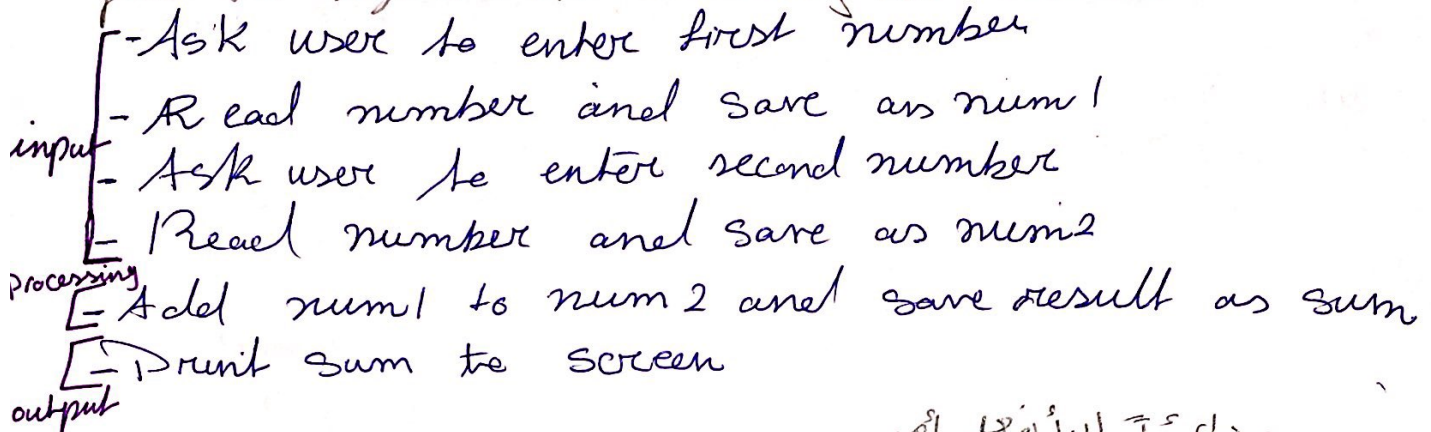 - Ask user to enter first number
- Read number and save as num1
input
- Ask user to enter second number
- Read number and save as num2
processing
- Add num1 to num2 and save result as sum
- Print sum to screen
output